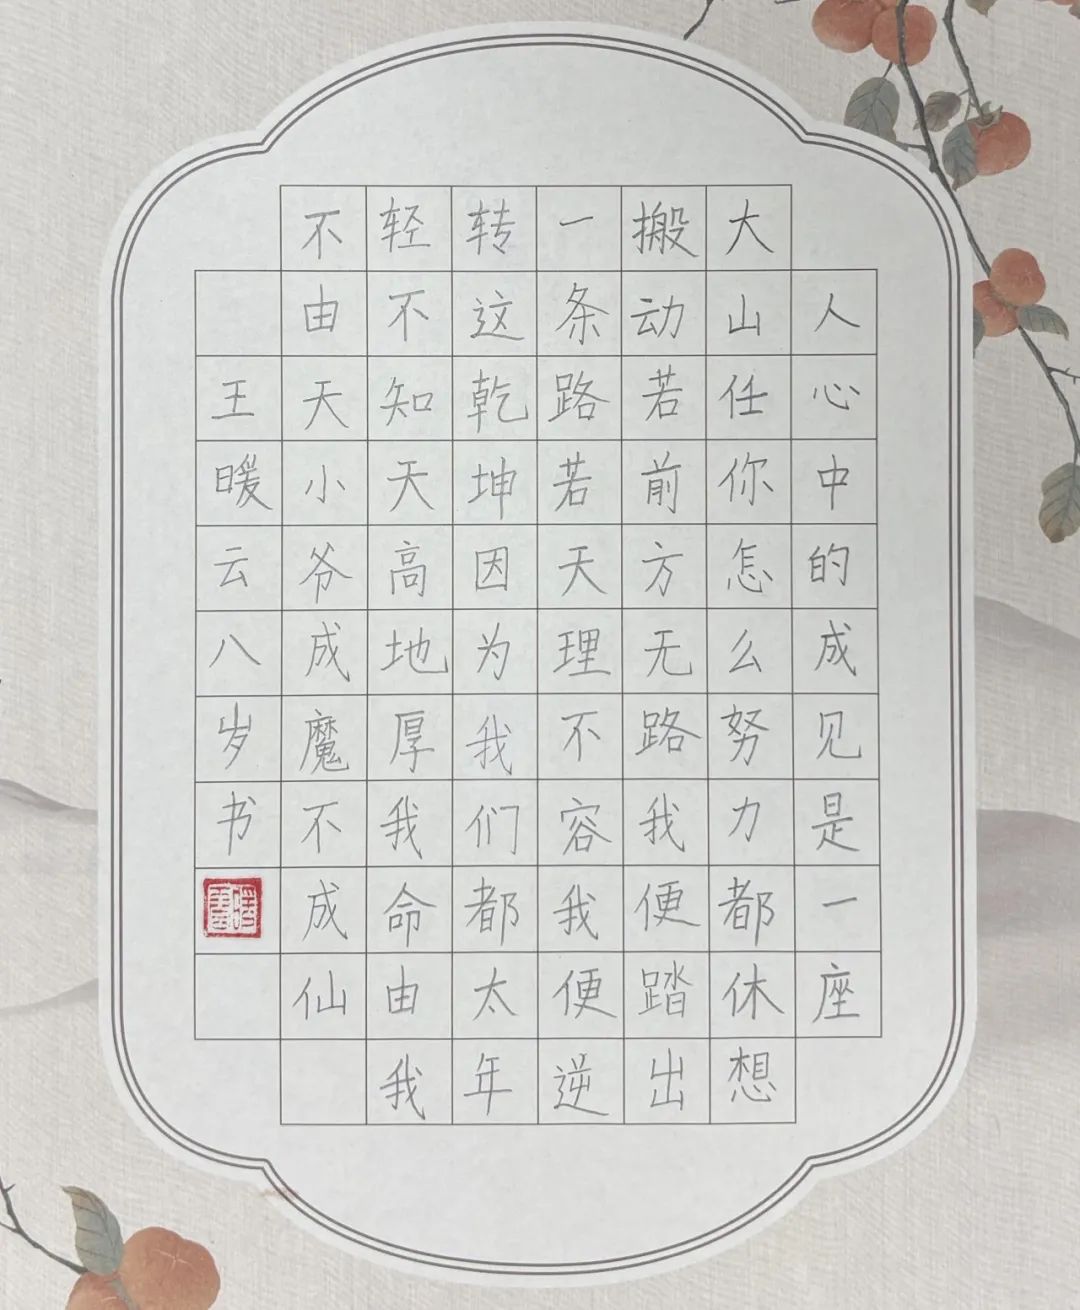 人心中的成见是一座
大山任你怎么努力都休想
搬动若前方无路我便踏出
一条路若天理不容我便逆
转这乾坤因为我们都太年
轻不知天高地厚我命由我
不由天小爷成魔不成仙
王暖云八岁书